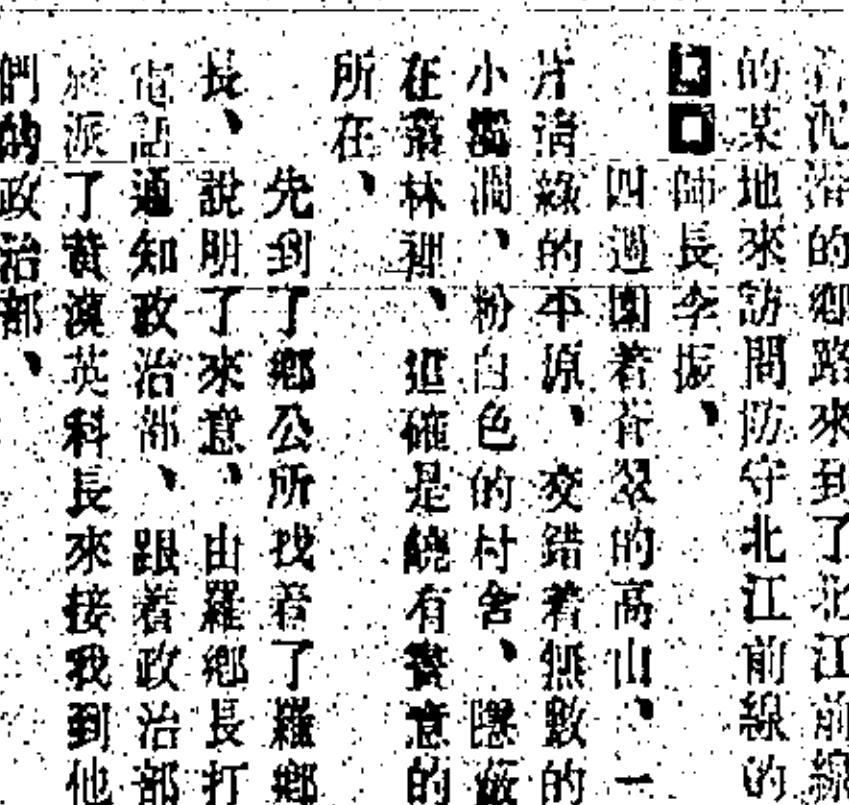 着泥濘的鄉路來到了北江前線
的某地來訪問防守北江前線的
□□師長李振、
四週圍着蒼翠的高山、一
片清綠的平原、交錯着無數的
小溪澗、粉白色的村舍、隱蔽
在叢林裡、這確是饒有詩意的
所在、
先到了鄉公所找着了羅鄉
長、說明了來意、由羅鄉長打
電話通知政治部、跟着政治部
派了黃漢英科長來接我到他
們的政治部、